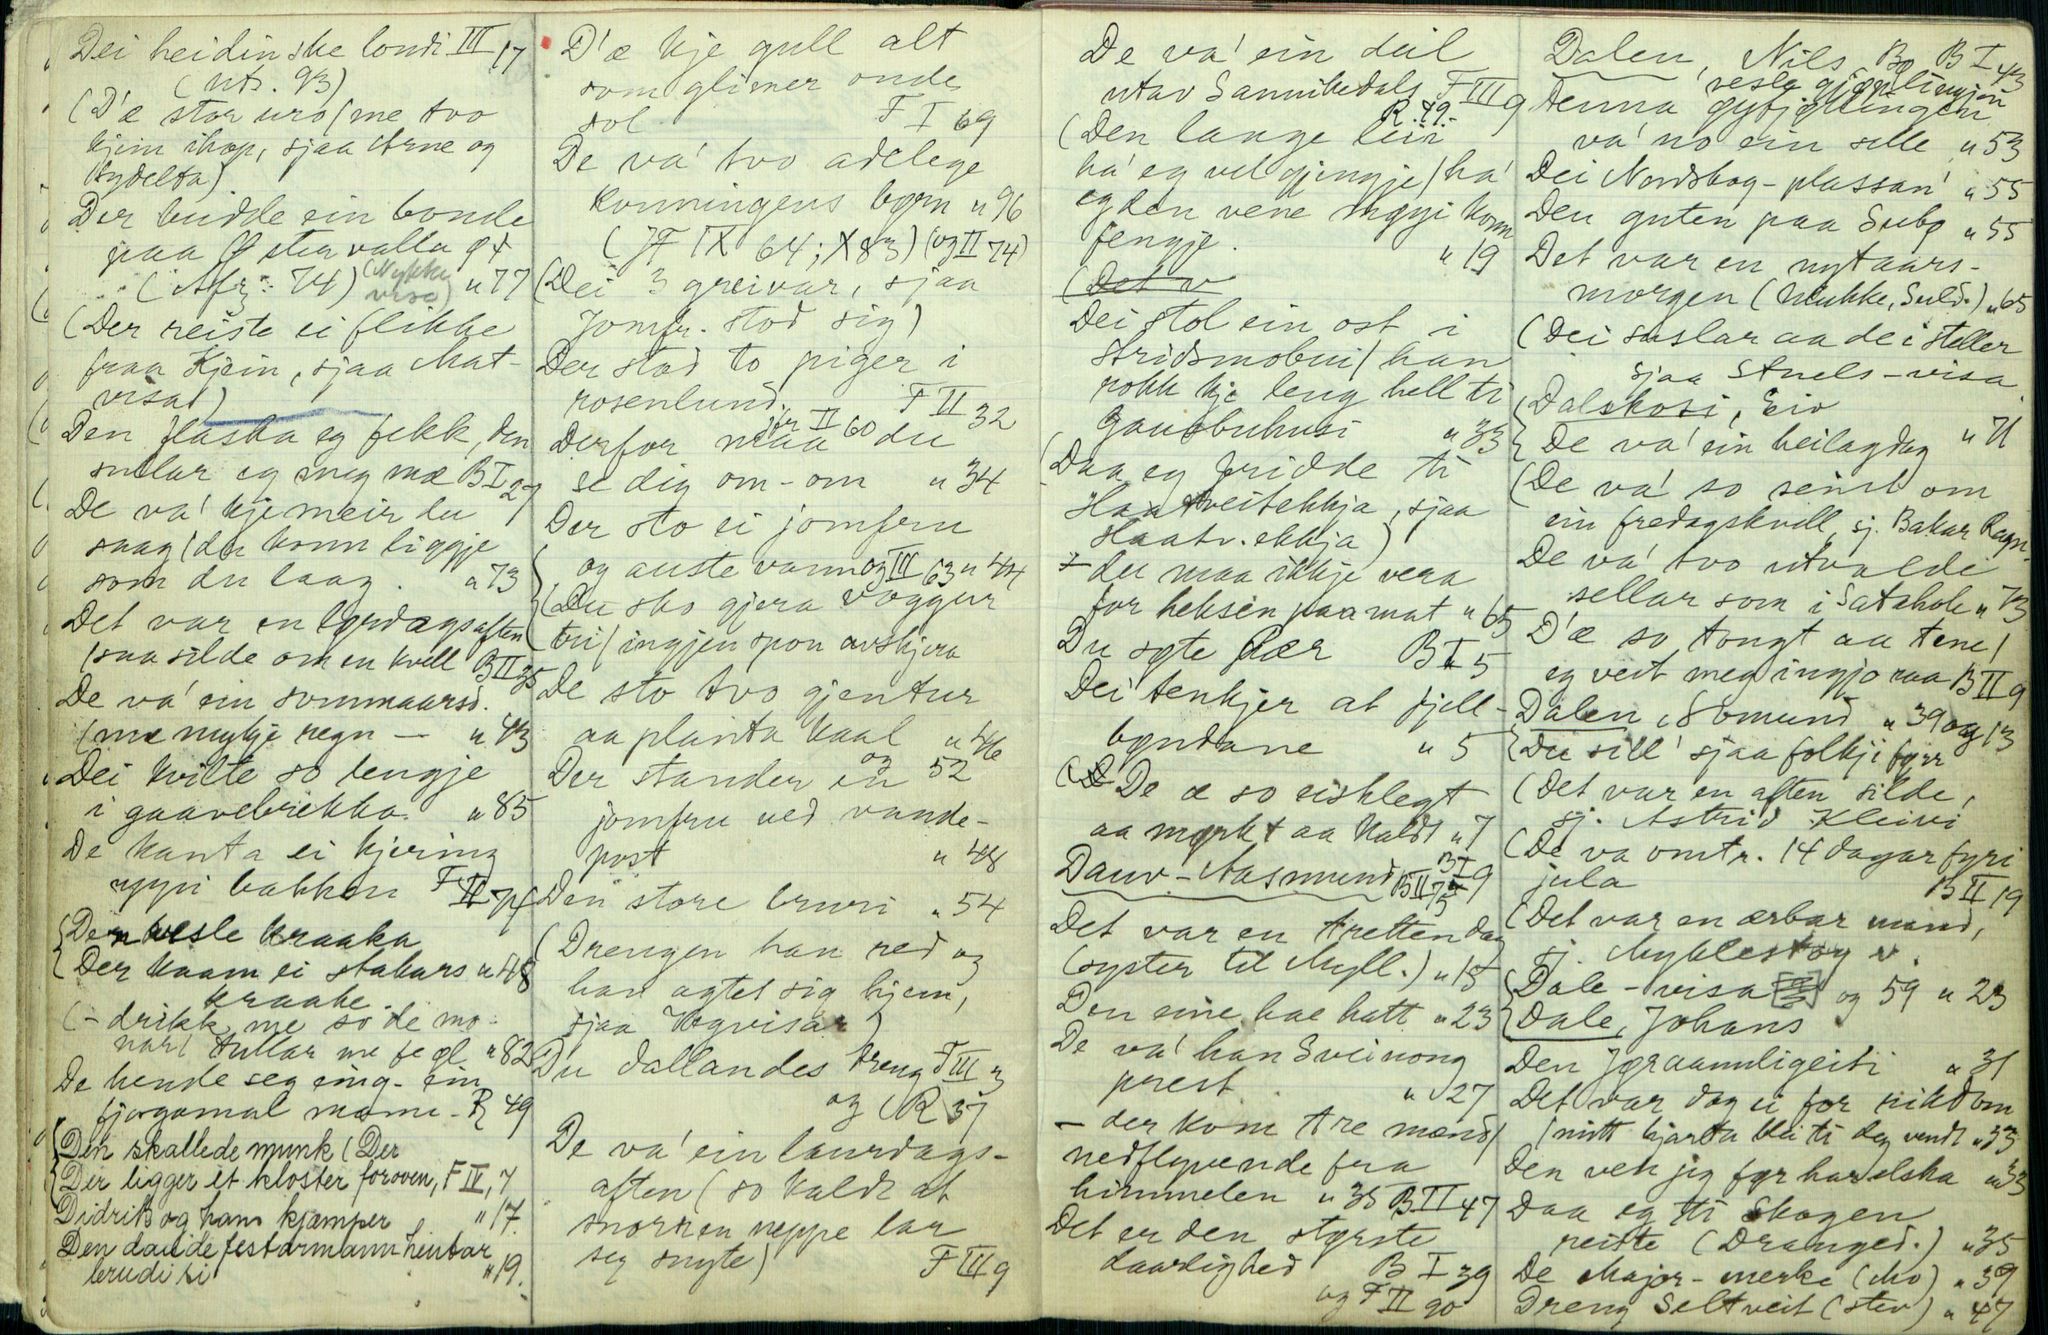 Dei heidinske londi III 17
(uts. 93)
(D'æ stor uro/me tvo
kjem ihop, sjaa Arne og
Kydelta)
Der budde ein bonde
paa Østervalla 94
(Afz: 74) (Nykke visa) " 77
(Der reiste ei flikke
fraa Kjein, sjaa Mat-
visa)
Den flaska eg fekk, den
smlar eg meg mæ B I 27
De va' kje meir du
saag/du konn liggje
som du laag. " 73
Det var en lørdagsaften
(saa silde om en kvell B II 35
De va' ein sommaarsd.
(me mykje regn — " 43
Dei kvilte so lengje
i gaavebrekka. " 85
De kanta ei kjering
uppi bakken F II 74
{Den vesle kraaka
{Der kaam ei stakars " 48
kraake.
(– drikk me so de mo-
nar/ tullar me fe øl " 82
De hende seg eing- ein
fjorgamal mann - R 49
{Den skallede munk (Der
{Der ligger et kloster foroven, F IV, 7
Didrik og hans kjæmper " 17.
Den daude festarmann hentar
brudi si " 19.
D'æ kje gull alt
som glimer onde
sol F I 69
De va' tvo adelege
konningens børn " 96
(JF IX 64; X 83) (og II 74)
(Dei 3 greivar, sjaa
Jomfr. stod sig)
Der stod to piger i
rosenlund. F II 32
jfr II 60
Derfor maa du
se dig om-om " 34
Der sto ei jomfru
og auste vann og III 63 " 44
(Du sko gjera voggur
tri/ ingjen spon avskjera
De sto tvo gjentur
aa planta kaal " 46
og 52
Der stander en
jomfru ved vande-
post " 48
Den store bruri " 54
(Drengen han red og
han agtet sig hjem,
sjaa Vogvisar)
Du dallandes dreng F III 3
og (R 37
De va' ein laurdags-
aften (so kaldt at
snorken neppe lar
seg snyte) F III 9
De va' ein deil
utav Sannikedals F III 9
R. 79.
(Den lange leii
ha' eg vel gjengje/ha'
eg den vene møyi konn
fengje. " 19
(Det v
Dei stol ein ost i
Stridsmobui/han
rokk kje leng hell ti
Gausbuhusi " 33
(Daa eg fridde ti
Haatveitekkja, sjaa
Haatv. ekkja)
– du maa ikkje vera
for heksen paa mat " 65
Du søte kær B I 5
Dei tenkjer at fjell-
bøndane " 5
(De æ so eisklegt
aa mørkt aa kaldt " 7
Dauv-Aasmund B I 9
B II 75
Det var en trettendag
(syster til Myll.) " 15
Den eine hae hatt " 23
De va' han Sveinong
prest " 27
– der kom tre mænd/
nedflyvende fra
himmelen " 35 B II 47
Det er den styrste
daarlighed B I 39
og F II 90
Dalen, Nils Bø B I 43
vesle gjætlingjen
Denna gytjølingen
va' no ein selle " 53
Dei Nordsbog-plassan' " 55
Den guten paa Subø " 55
Det var en nytaars-
morgen (Nukke, Suld.) " 65
(Dei suslar aa dei steller
sjaa Stuels-visa.
{Dalskosi, Eiv
{De va' ein heilagdag " 71
(De va' so seint om
ein fredagskvell, sj. Bakar Ragn-
De va' tvo utvalde
sellar som i Satahole " 73
D'æ so tongt aa tene/
eg veit meg ingjo raa B II 9
{Dalen, Somund " 39 og 13
{Du sill' sjaa folkji fyrr
(Det var en aften silde,
sj. Astrid Kleivi
(De va omtr. 14 dagar fyri
jula B II 19
(Det var en ærbar mand,
sj. Myklestøg v.
{Dale-visa og 59 " 23
{Dale, Johans
Den jøraamligeiti " 31
Det var dog ei for rikdom
(mitt hjarta blei ti deg vendt " 33
Den vek jeg før har elska " 33
Daa eg ti Skogen
reiste (Dranged.) " 35
De Major-merke (Mo) " 39
Dreng Seltveit (stev) " 47